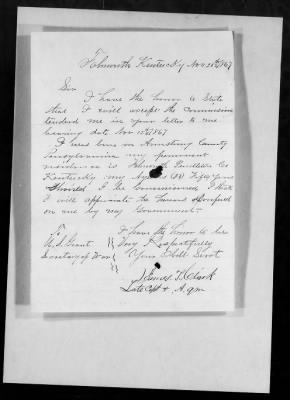 Falmouth Kentucky Nov 25th 1867
Sir
I have the honor to State
that I will accept the commission
tendered me in your letter to me
bearing date Nov 15th 1867
I was born in Armstrong County
Pennsylvania my permanent
residence is Falmouth Pendleton Co
Kentucky my Age is Fifty Years
Should I be Commissioned I think
I will appreciate the honors Confered
on me by my Government
I have the honor to be
To Very Respectfully
U. S. Grant Your Obdt Servt
Secretary of War
James T. Clark
Late Capt & A.q.m